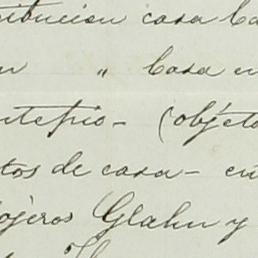 tribucion casa Ca
n " Casa en
ntepio - (objeto
tos de casa - en
lojeros Glahn y